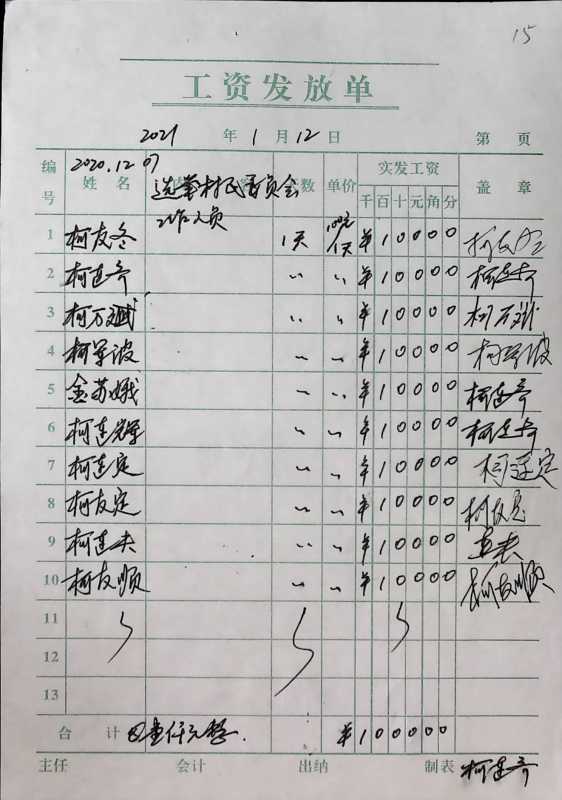 15
工资发放单
2021 年 1 月 12 日 第 页
编号 姓名 2020.12.07 选举村民委员会工作人员 天数 单价 实发工资 盖章
千 百 十 元 角 分
1 柯友冬 1天 100元/1天 ¥10000
2 柯连奇 〃 〃 ¥10000 柯连奇
3 柯万斌 〃 〃 ¥10000 柯万斌
4 柯军波 〃 〃 ¥10000 柯军波
5 金苏娥 〃 〃 ¥10000 柯连奇
6 柯连辉 〃 〃 ¥10000 柯连奇
7 柯连定 〃 〃 ¥10000 柯连定
8 柯友定 〃 〃 ¥10000 柯友定
9 柯连夫 〃 〃 ¥10000 连夫
10 柯友顺 〃 〃 ¥10000 柯友顺
11
12
13
合计 壹仟元整 ¥100000
主任 会计 出纳 制表 柯连奇